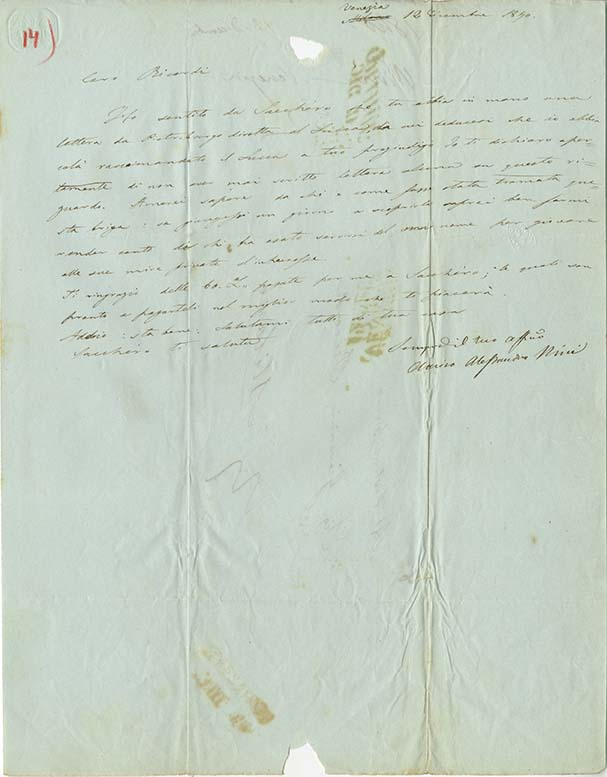 14)
Venezia
Milano 12 Dicembre 1840.
Caro Ricordi
Ho sentito da Sacchèro che tu abbia in mano una
lettera da Pietroburgo diretta al Lucca, da cui deducesi che io abbia
colà raccomandato il Lucca a tuo pregiudizio. Io ti dichiaro aper-
tamente di non aver mai scritto lettera alcuna su questo ri-
guardo. Amerei sapere da chi e come fosse stata tramata que-
sta briga: se giungessi un giorno a scoprirlo saprei ben farmi
render conto da chi ha osato servirsi del mio nome per giovare
alle sue mire private d'interesse.
Ti ringrazio delle 60 L. pagate per me a Sacchèro; le quali son
pronto a pagartele nel miglior modo che ti piacerà.
Addio: sta bene: salutami tutti di tua casa
Sacchèro ti saluta
Sempre il tuo affmo
amico Alessandro Nini